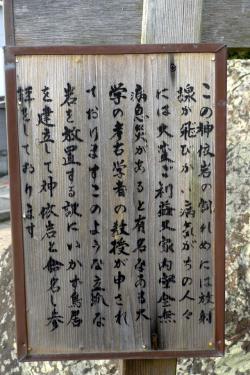 この神依岩の割れめには放射
線が飛びかい病気がちの人々
には大変ご利益
があると有名な
学の考古学者の教授が申され
ておりますこのような立派な
岩を放置する訳にいかず鳥居
を建立して神依岩と命名し参
拝しております